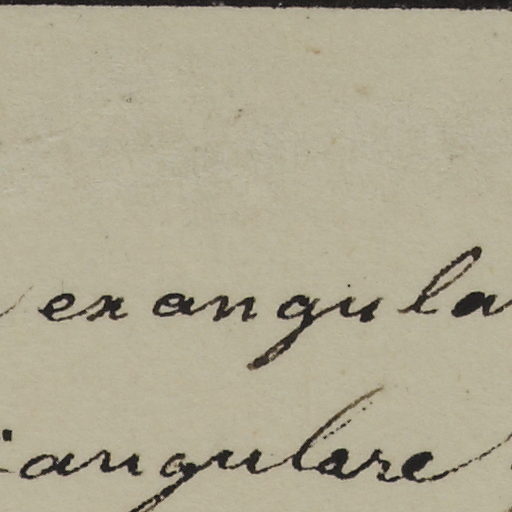 exangula
angulare